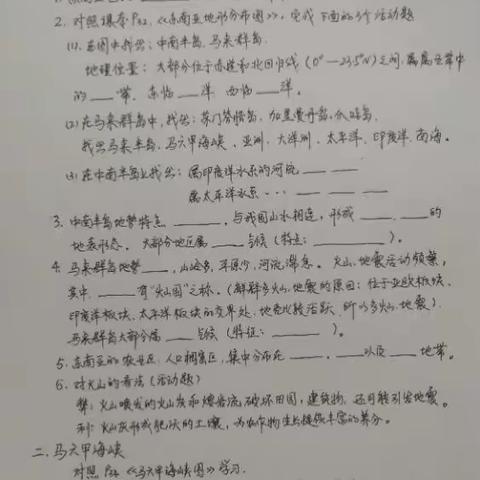 2. 对照课本P22,《东南亚地形分布图》,完成下面的3个活动题
(1). 在图中找出:中南半岛、马来群岛.
地理位置:大部分位于赤道和北回归线(0°—23.5°N)之间,属五带中
的___带. 东临___洋 西临___洋.
(2) 在马来群岛中,找出:苏门答腊岛、加里曼丹岛、爪哇岛.
找出马来半岛、马六甲海峡、亚洲、大洋洲、太平洋、印度洋、南海。
(3) 在中南半岛上找出:属印度洋水系的河流___ ___
属太平洋水系··· ___ ___ ___
3. 中南半岛地势特点______,与我国山水相连,形成____、____的
地表形态。大部分地区属___气候(特点:________)。
4. 马来群岛地势___,山岭多,平原少,河流湍急。火山、地震活动频繁,
其中,_____有“火山国”之称。(解释多火山、地震的原因:位于亚欧板块、
印度洋板块、太平洋板块的交界处,地壳比较活跃,所以多火山、地震).
马来群岛大部分属___气候(特征:_______)。
5. 东南亚的农业区、人口稠密区,集中分布在____,____以及___地带。
6. 对火山的看法(活动题)
弊:火山喷发的火山灰和熔岩流,破坏田园,建筑物,还可能引发地震。
利:火山灰形成肥沃的土壤,为农作物生长提供丰富的养分。
二. 马六甲海峡
对照P24《马六甲海峡图》学习.